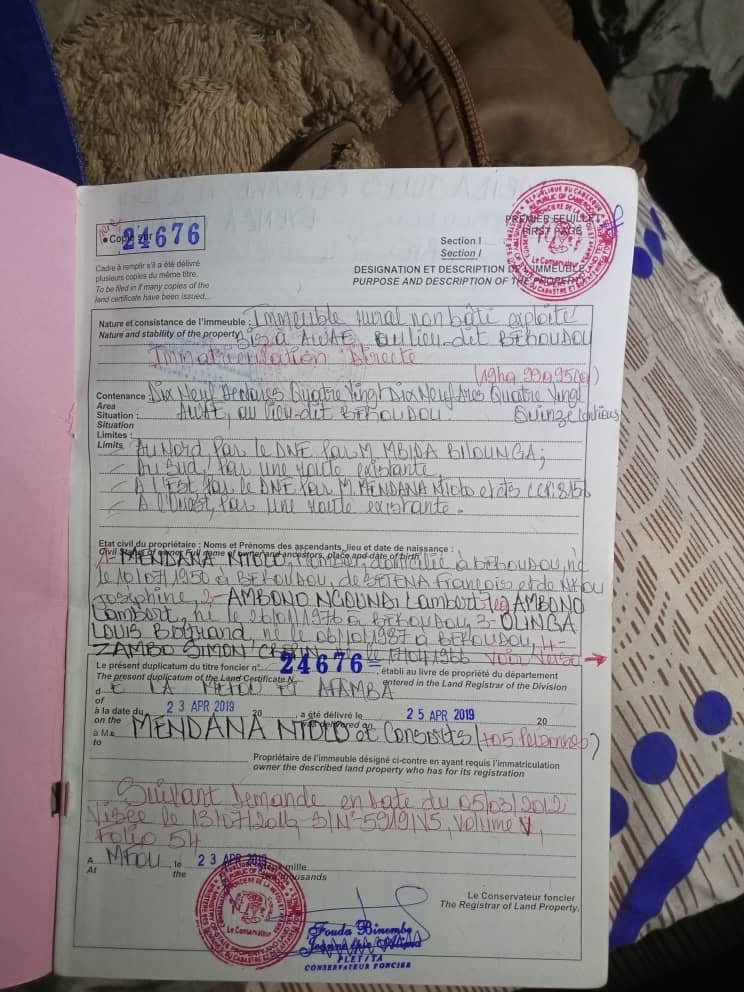 Copie sur
24676
Cadre à remplir s'il a été délivré
plusieurs copies du même titre.
To be filed in if many copies of the
land certificate have been issued...
PREMIER FEUILLET
FIRST PAGE
Section I
Section I
DESIGNATION ET DESCRIPTION DE L'IMMEUBLE
PURPOSE AND DESCRIPTION OF THE PROPERTY
Nature et consistance de l'immeuble : Immeuble rural non bâti exploité
Nature and stability of the property sis à AWAE, au lieu-dit BEHOUDOU
Immatriculation Directe
(19ha 99a 95ca)
Contenance : Dix Neuf Hectares Quatre Vingt Dix Neuf Ares Quatre Vingt
Area Quinze Centiares
Situation : AWAE, au lieu-dit BEHOUDOU.
Situation
Limites :
Limits
Au Nord, par le DNE par M. MBIDA BILOUNGA;
Au Sud, par une route existante
A l'Est, par le DNE par M. MENDANA NTOLO et
A l'Ouest, par une route existante.
Etat civil du propriétaire : Noms et Prénoms des ascendants, lieu et date de naissance :
1- MENDANA NTOLO, domicilié à BEHOUDOU, né
le 10/07/1950 à BEHOUDOU, de Françoise et de
Josephine, 2- AMBONO NGOUNDI Lambert AMBONO
Lambert, né le à BEHOUDOU, 3- OLINGA
LOUIS Bertrand, né le 06/10/1987 à BEHOUDOU, 4-
ZAMBO SIMON Voir Verso →
Le présent duplicatum du titre foncier n° 24676 =, établi au livre de propriété du département
The present duplicatum of the Land Certificate N. entered in the Land Registrar of the Division
d E LA MEFOU ET AFAMBA
of
à la date du 23 APR 2019 20 , a été délivré le 25 APR 2019 20
on the was delivered on
à M. MENDANA NTOLO et Consorts (+05 Personnes)
to
Propriétaire de l'immeuble désigné ci-contre en ayant requis l'immatriculation
owner the described land property who has for its registration
Suivant Demande en date du 05/03/2012
Visée le 13/07/2016, S/N° 5919/V5, Volume V,
Folio 54
A Mfou, le 23 APR 2019 mille
At the thousands
Le Conservateur foncier
The Registrar of Land Property.
Fouda Binembe
PLET/TA
CONSERVATEUR FONCIER
REPUBLIQUE DU CAMEROUN
REPUBLIC OF CAMEROON
Le Conservateur